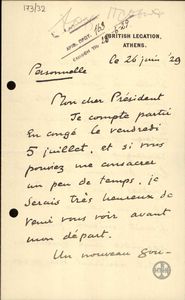 173/32
BRITISH LEGATION,
ATHENS.
Le 26 juin '29
Personnelle
Mon cher Président
Je compte partir
en congé le vendredi
5 juillet, et si vous
pouviez me consacrer
un peu de temps, je
serais très heureux de
venir vous voir avant
mon départ.
Un nouveau gou-